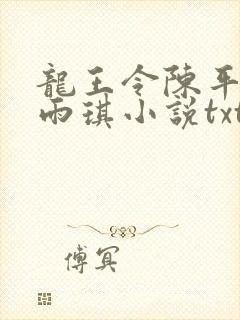 龍王令陳平
雨琪小説txt
傅冥